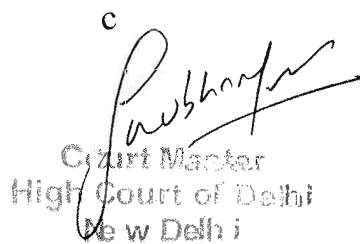 c
Court Master
High Court of Delhi
New Delhi